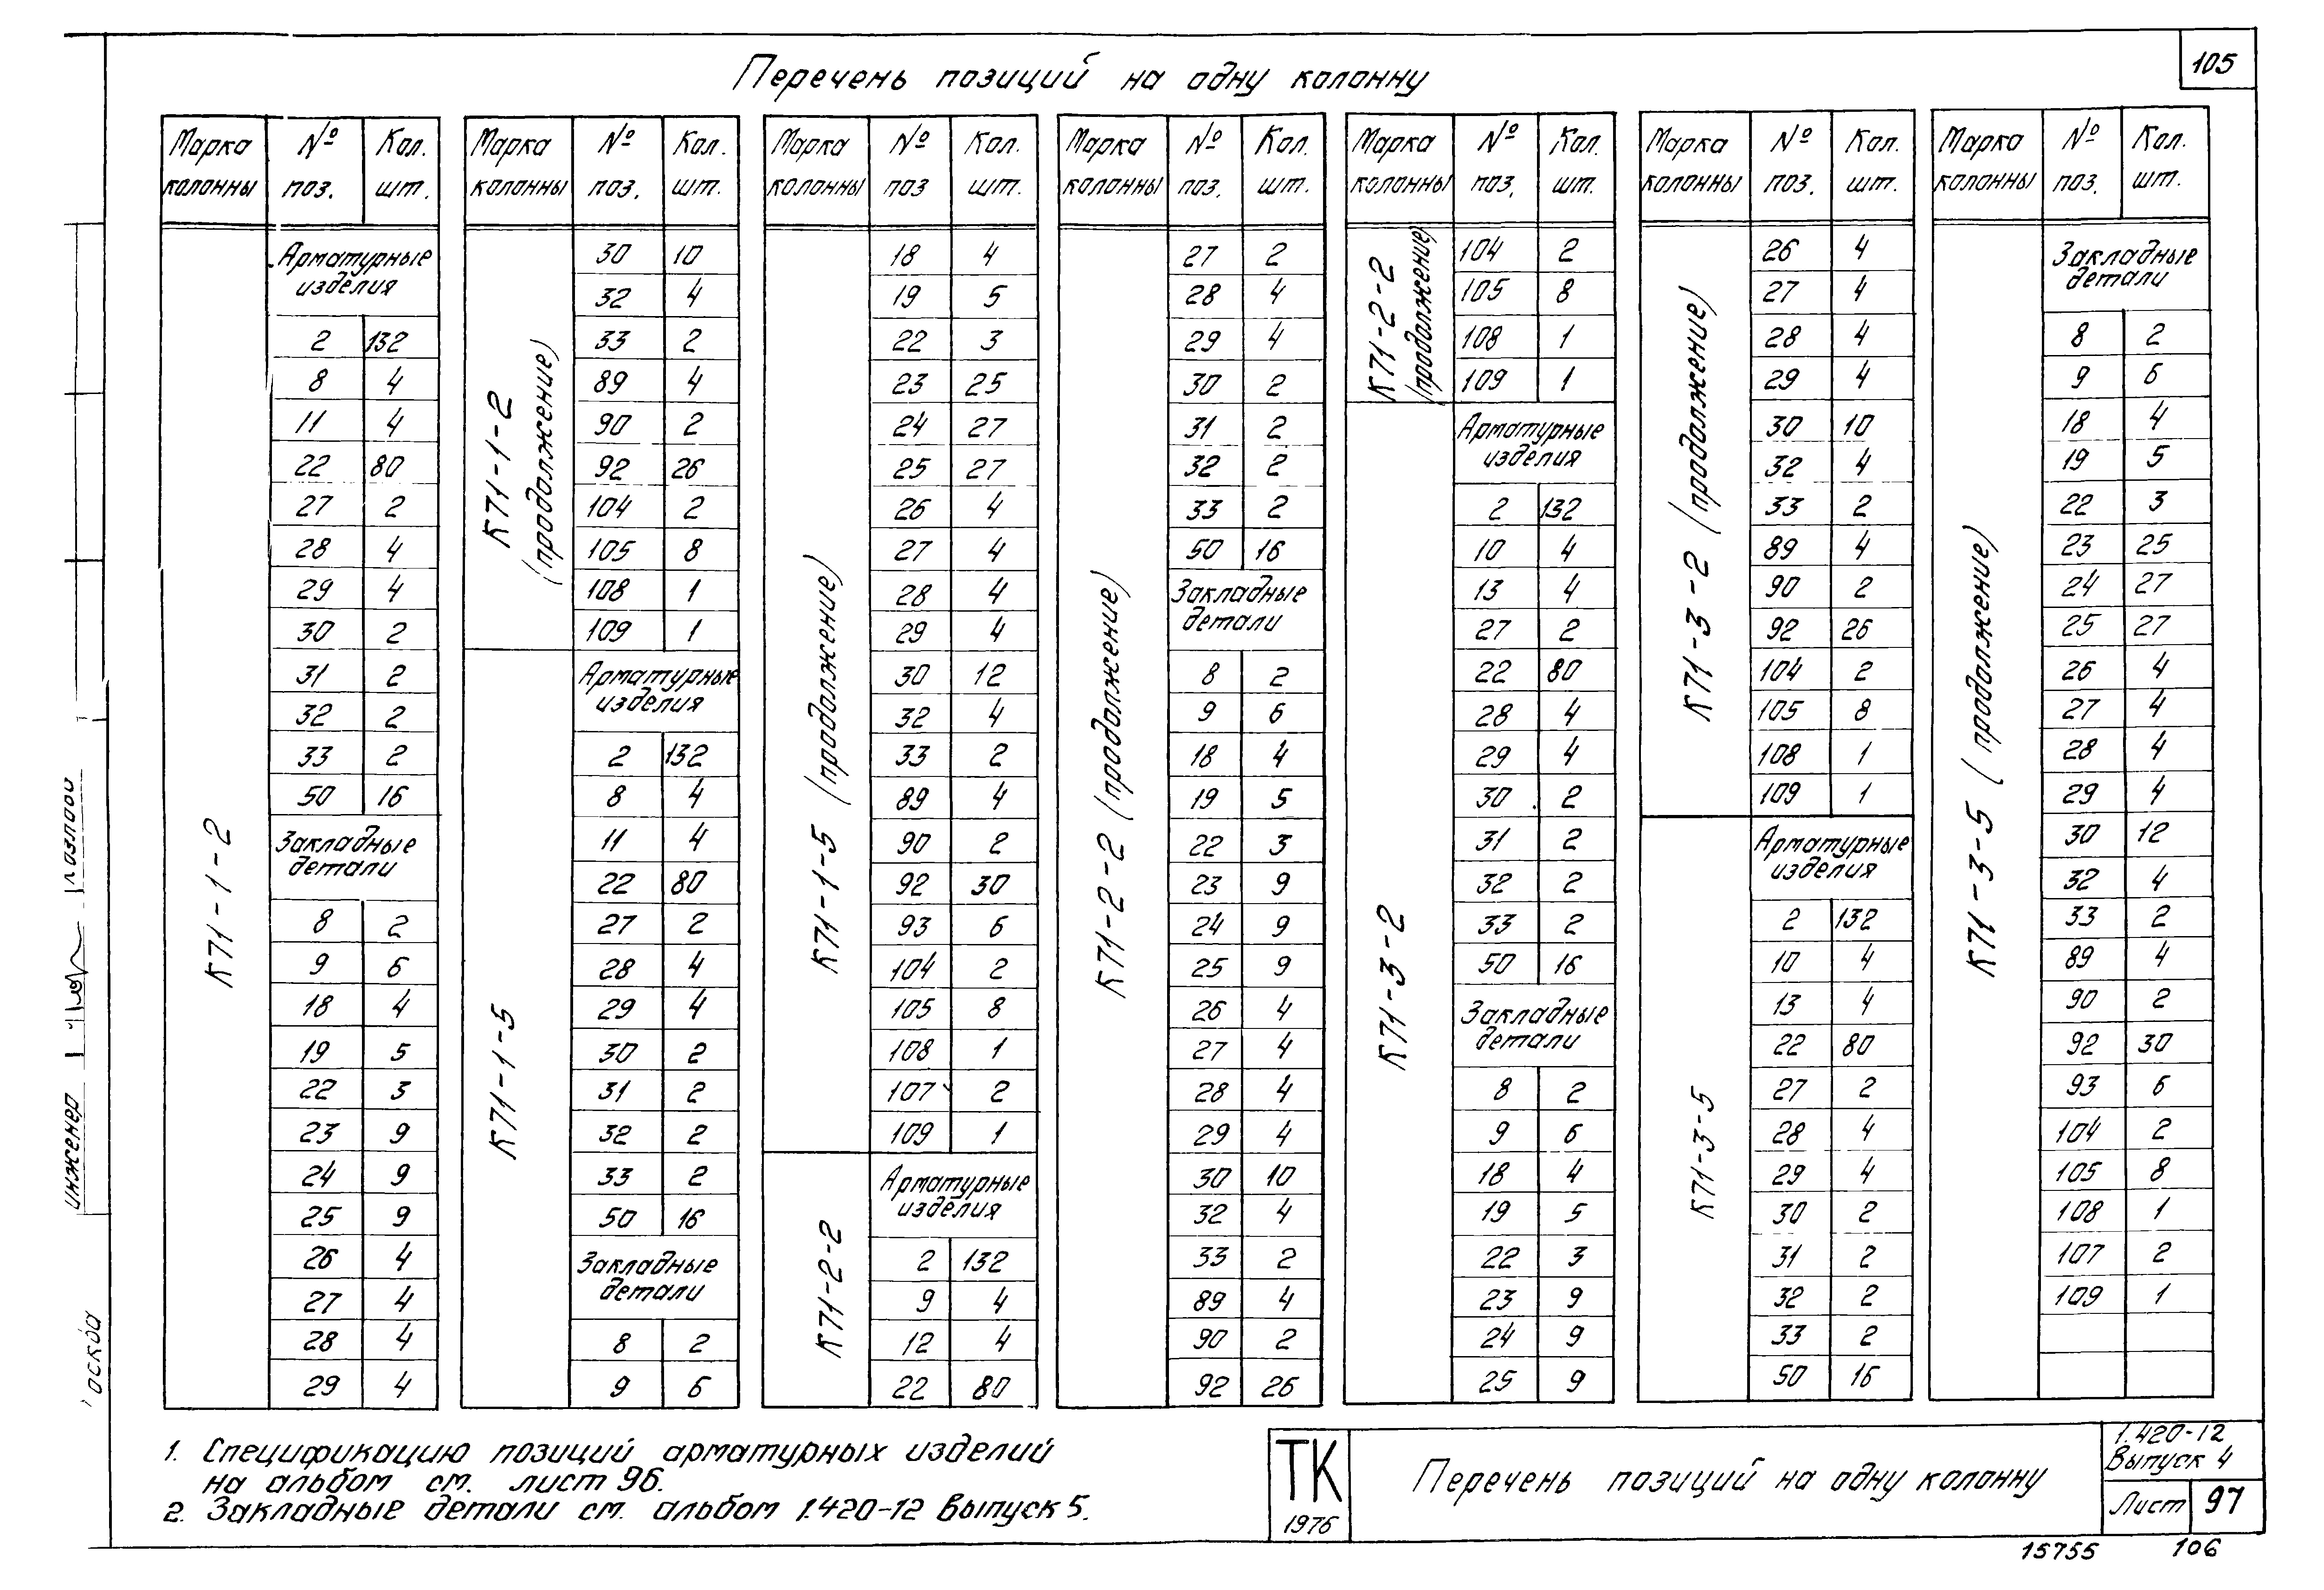 105
Перечень позиций на одну колонну
Марка колонны № поз. Кол. шт.
К71-1-2
Арматурные изделия
2 132
8 4
11 4
22 80
27 2
28 4
29 4
30 2
31 2
32 2
33 2
50 16
Закладные детали
8 2
9 6
18 4
19 5
22 3
23 9
24 9
25 9
26 4
27 4
28 4
29 4
Марка колонны № поз. Кол. шт.
К71-1-2 (продолжение)
30 10
32 4
33 2
89 4
90 2
92 26
104 2
105 8
108 1
109 1
К71-1-5
Арматурные изделия
2 132
8 4
11 4
22 80
27 2
28 4
29 4
30 2
31 2
32 2
33 2
50 16
Закладные детали
8 2
9 6
Марка колонны № поз Кол. шт.
К71-1-5 (продолжение)
18 4
19 5
22 3
23 25
24 27
25 27
26 4
27 4
28 4
29 4
30 12
32 4
33 2
89 4
90 2
92 30
93 6
104 2
105 8
108 1
107 2
109 1
К71-2-2
Арматурные изделия
2 132
9 4
12 4
22 80
Марка колонны № поз. Кол. шт.
К71-2-2 (продолжение)
27 2
28 4
29 4
30 2
31 2
32 2
33 2
50 16
Закладные детали
8 2
9 6
18 4
19 5
22 3
23 9
24 9
25 9
26 4
27 4
28 4
29 4
30 10
32 4
33 2
89 4
90 2
92 26
Марка колонны № поз. Кол. шт.
К71-2-2 (продолжение)
104 2
105 8
108 1
109 1
К71-3-2
Арматурные изделия
2 132
10 4
13 4
27 2
22 80
28 4
29 4
30 2
31 2
32 2
33 2
50 16
Закладные детали
8 2
9 6
18 4
19 5
22 3
23 9
24 9
25 9
Марка колонны № поз. Кол. шт.
К71-3-2 (продолжение)
26 4
27 4
28 4
29 4
30 10
32 4
33 2
89 4
90 2
92 26
104 2
105 8
108 1
109 1
К71-3-5
Арматурные изделия
2 132
10 4
13 4
22 80
27 2
28 4
29 4
30 2
31 2
32 2
33 2
50 16
Марка колонны № поз. Кол. шт.
К71-3-5 (продолжение)
Закладные детали
8 2
9 6
18 4
19 5
22 3
23 25
24 27
25 27
26 4
27 4
28 4
29 4
30 12
32 4
33 2
89 4
90 2
92 30
93 6
104 2
105 8
108 1
107 2
109 1
инженер
1. Спецификацию позиций арматурных изделий
на альбом см. лист 96.
2. Закладные детали см. альбом 1.420-12 Выпуск 5.
ТК
1976
Перечень позиций на одну колонну
1.420-12
Выпуск 4
Лист 97
15755 106